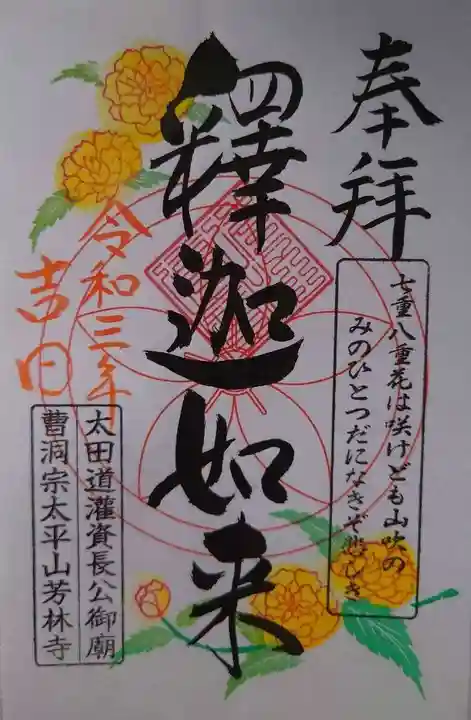 奉拝
七重八重花は咲けども山吹の
みのひとつだになきぞ悲しき
釋迦如来
令和三年
吉日
太田道灌資長公御廟
曹洞宗太平山芳林寺